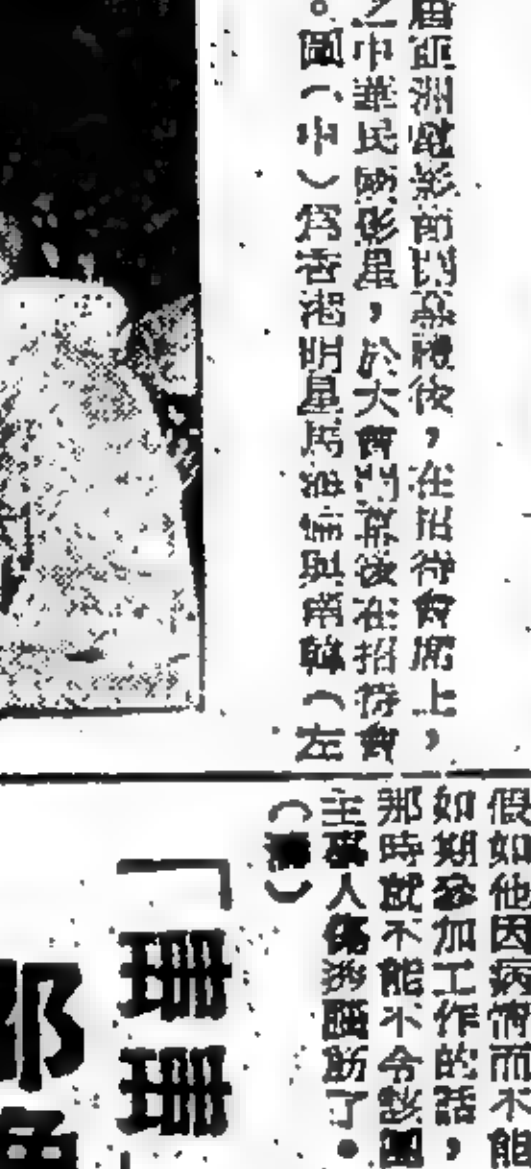 屆亞洲電影節開幕禮後，在招待會席上，
之中華民國影星，於大會開幕後在招待會
。圖（中）爲香港明星馬海倫與南韓（左
假如他因病情而不能
如期參加工作的話，
那時就不能不令影圈
主事人傷透腦筋了。
（ ）
「瑋瑋
那色